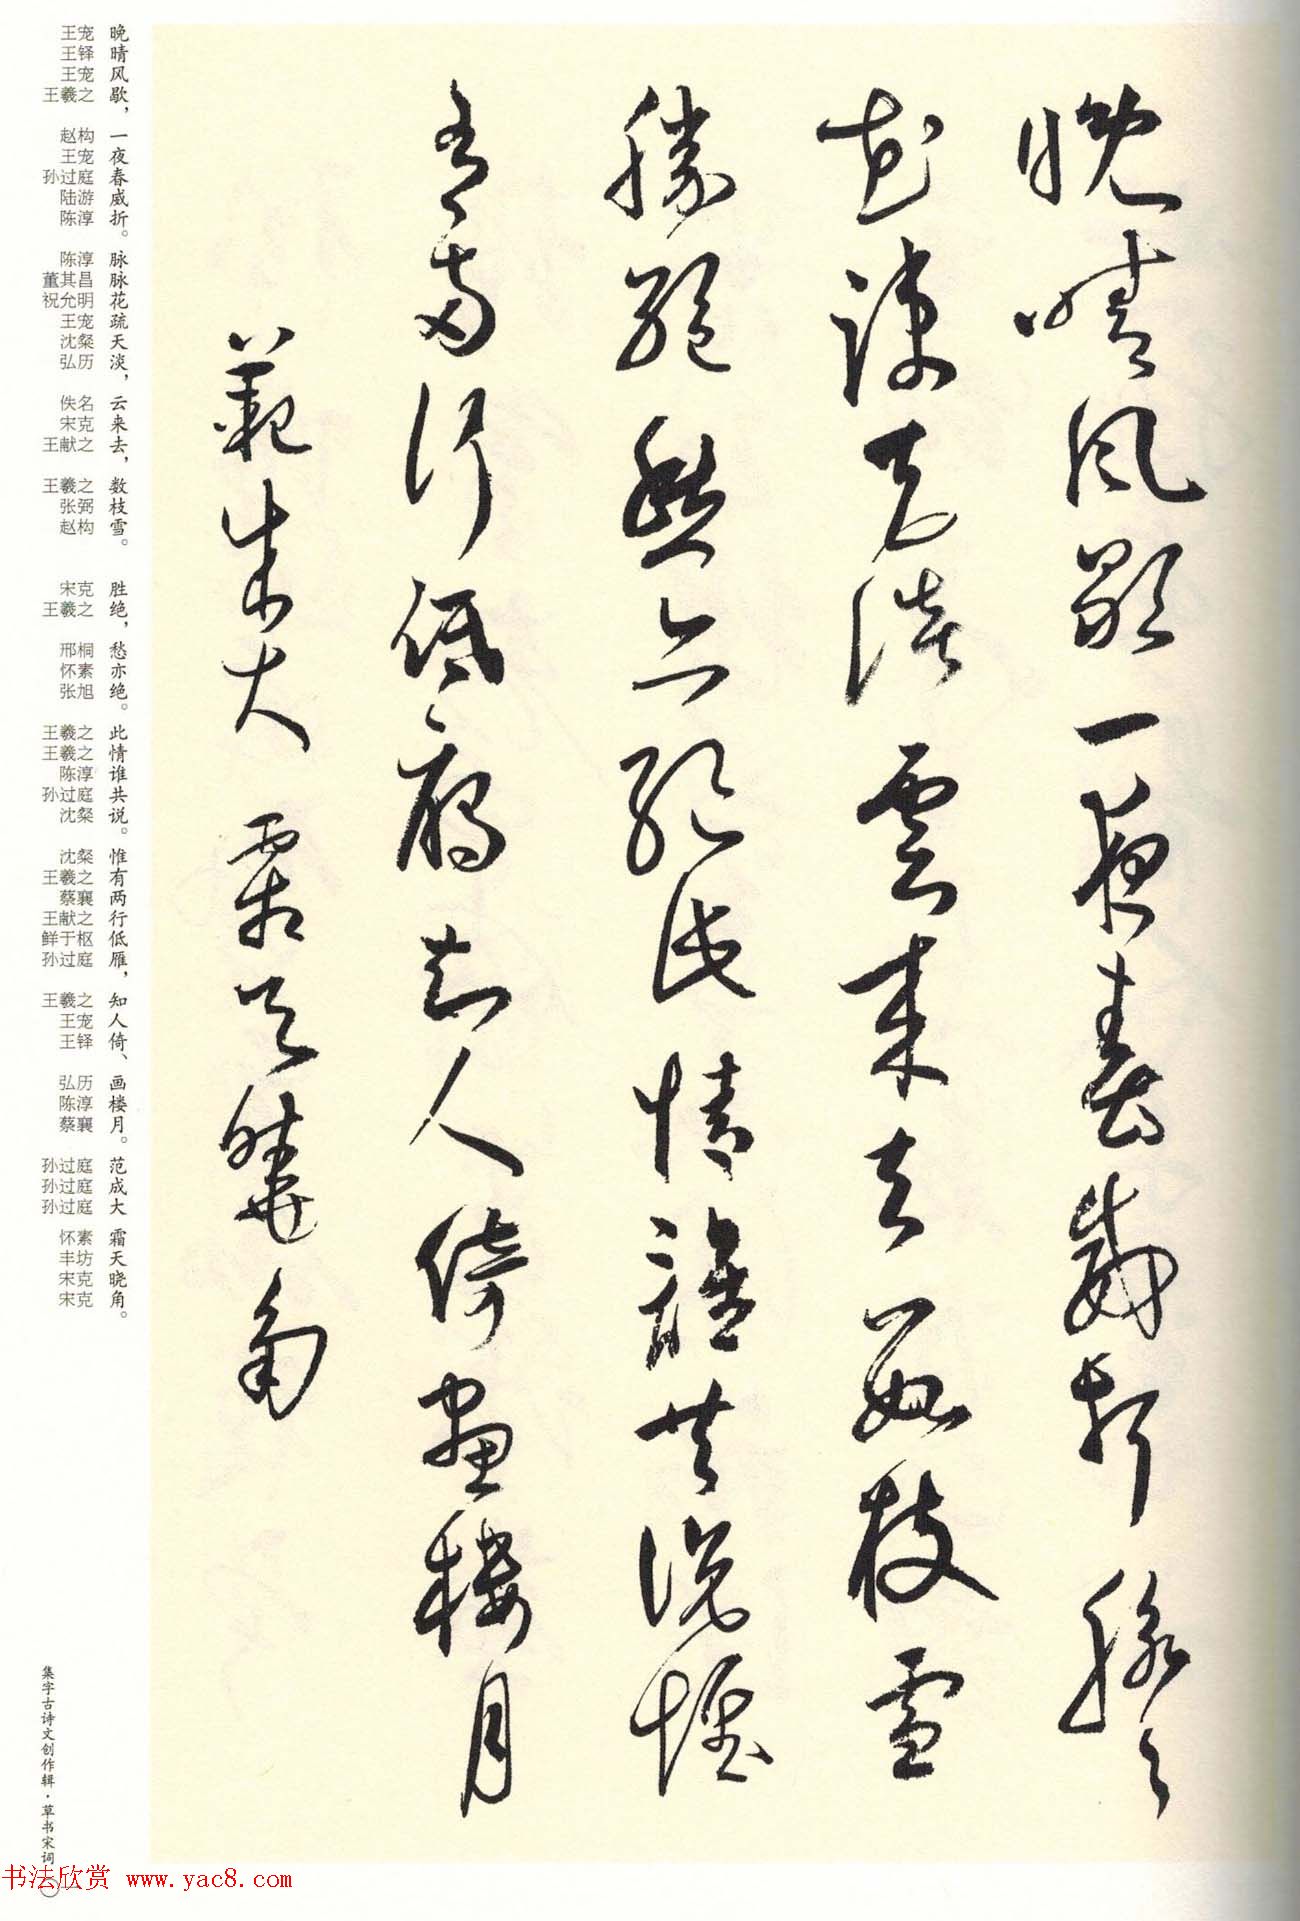 晚晴風歇一夜春威折脉々
花疎天淡雲来去數枝雪
勝絶愁亦絶此情誰共説惟
有兩行低雁知人倚畫樓月
範成大 霜天曉角
晚晴风歇，一夜春威折。脉脉花疏天淡，云来去，数枝雪。 胜绝，愁亦绝。此情谁共说。惟有两行低雁，知人倚、画楼月。范成大 霜天晓角。
王宠 王铎 王宠 王羲之 赵构 王宠 孙过庭 陆游 陈淳 陈淳 董其昌 祝允明 王宠 沈粲 弘历 佚名 宋克 王献之 王羲之 张弼 赵构 宋克 王羲之 邢桐 怀素 张旭 王羲之 王羲之 陈淳 孙过庭 沈粲 沈粲 王羲之 蔡襄 王献之 鲜于枢 孙过庭 王羲之 王宠 王铎 弘历 陈淳 蔡襄 孙过庭 孙过庭 孙过庭 怀素 丰坊 宋克 宋克
集字古诗文创作辑·草书宋词
书法欣赏 www.yac8.com